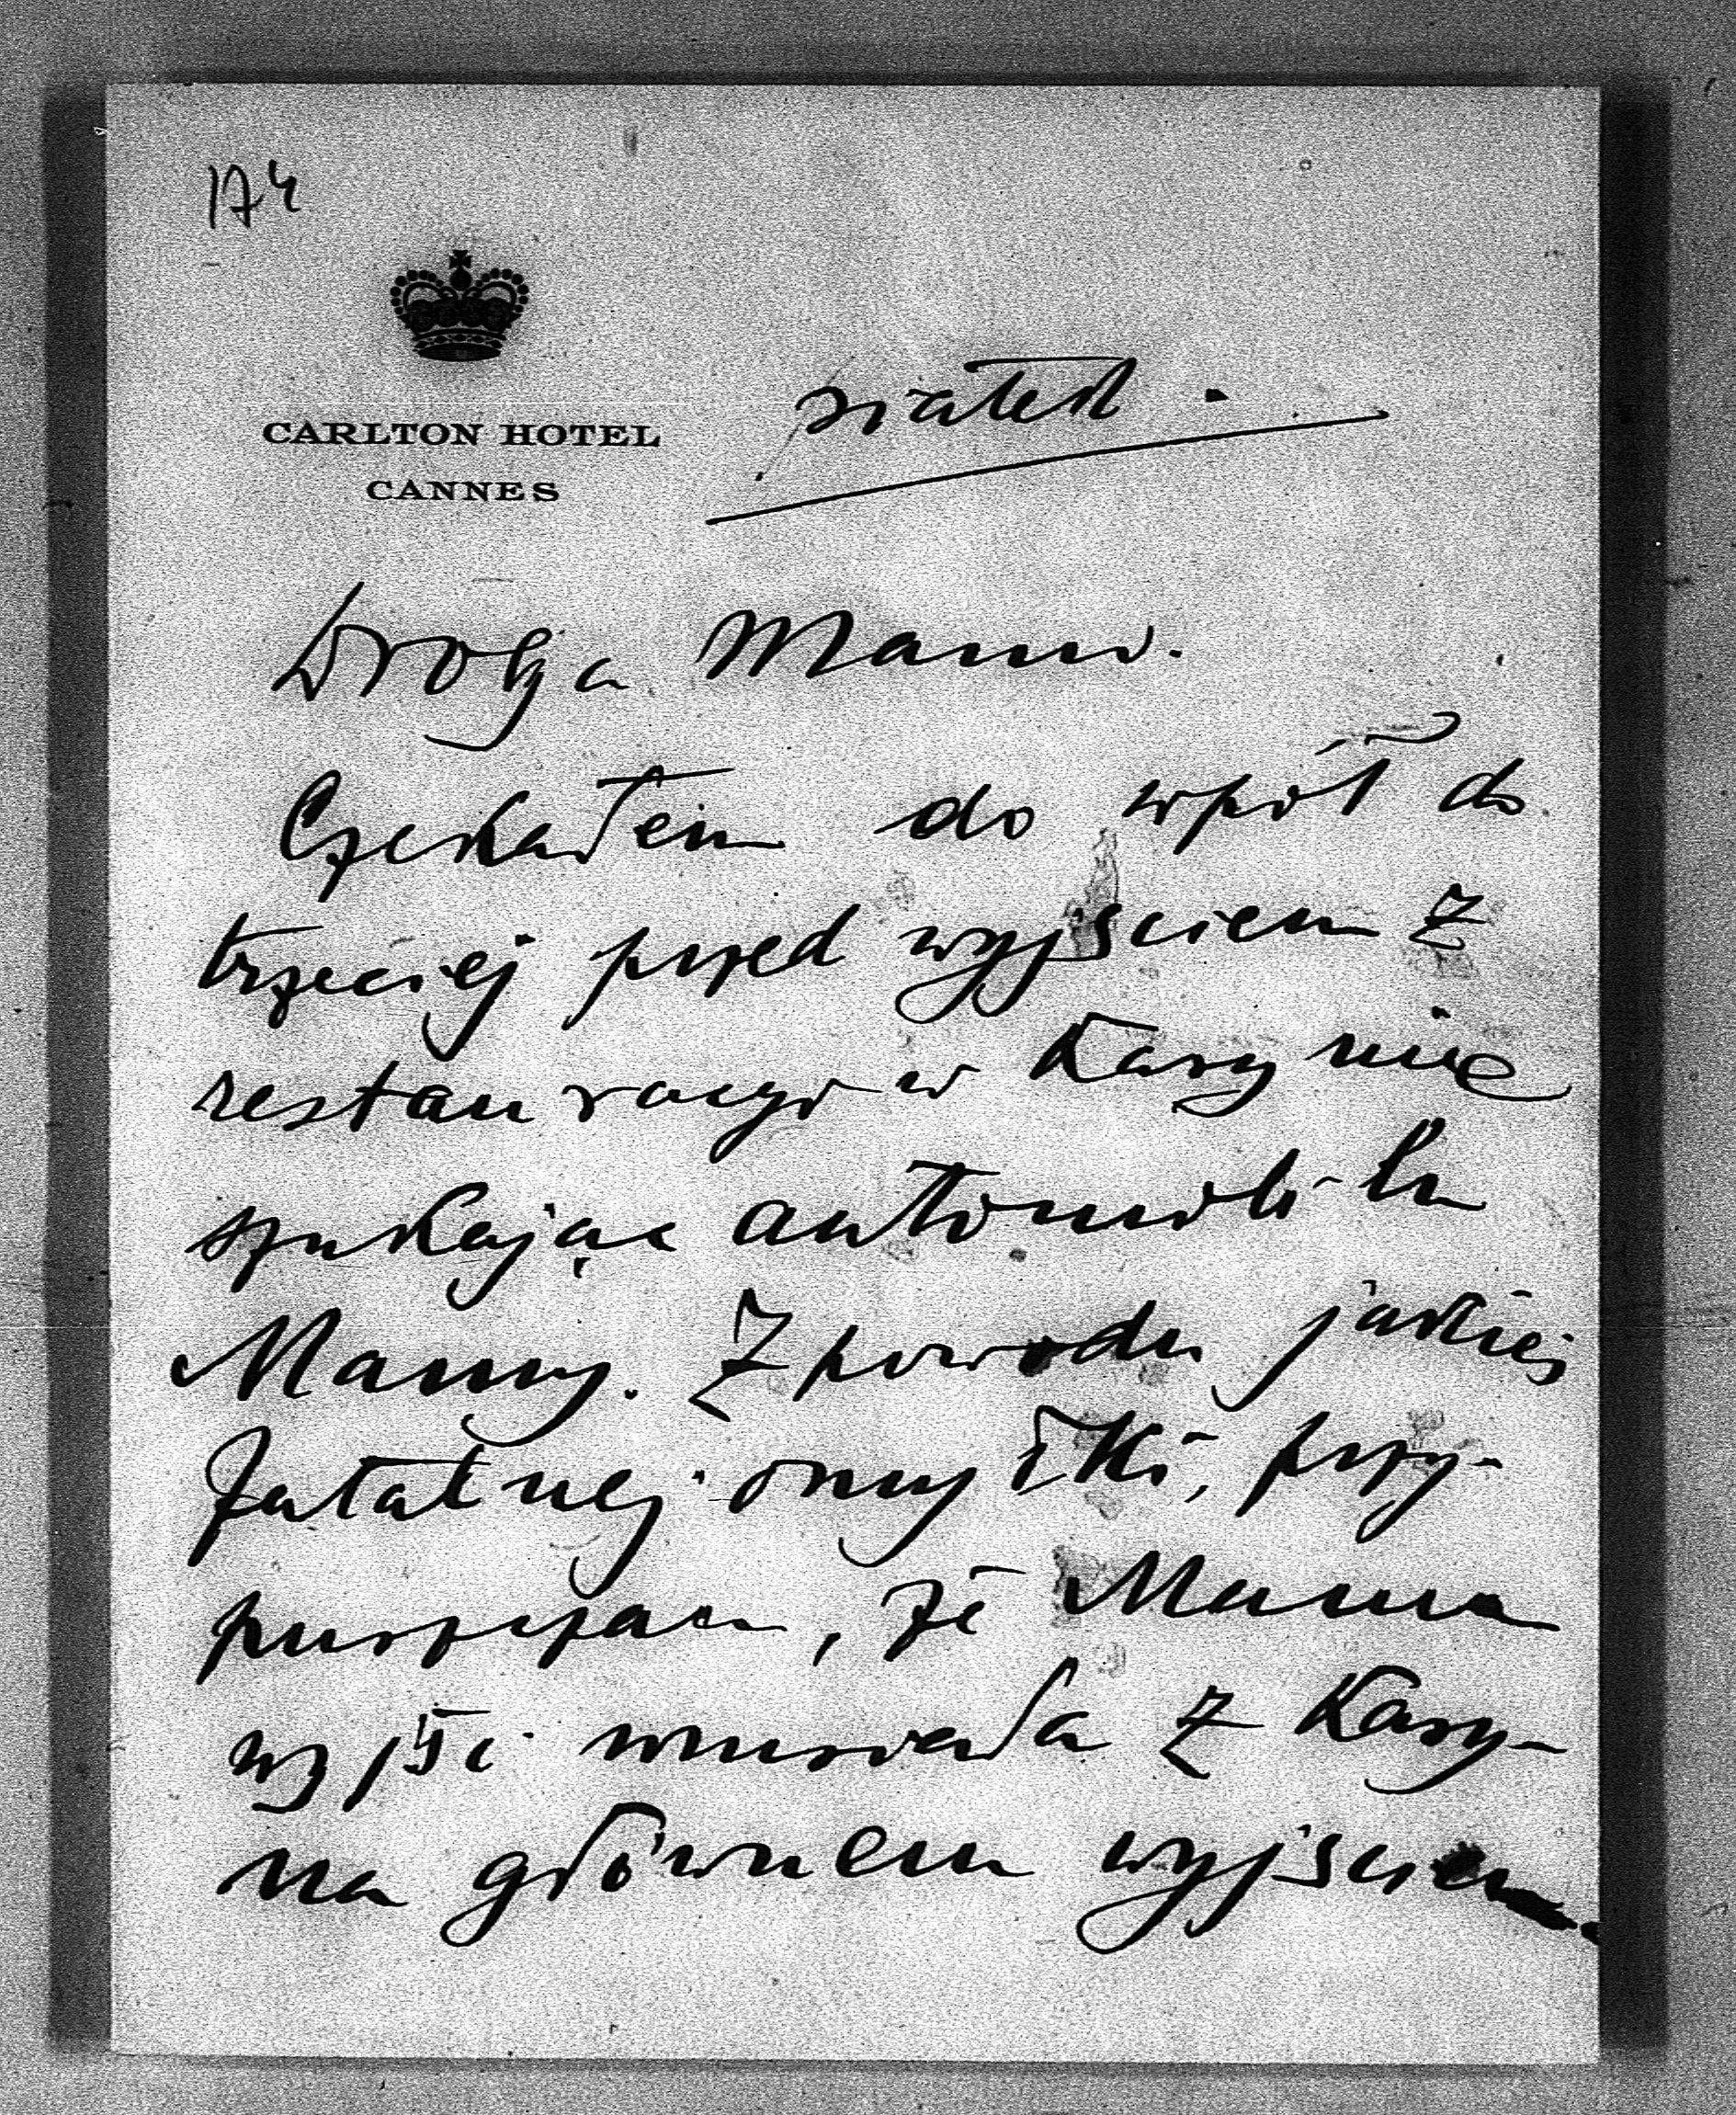 174
CARLTON HOTEL
CANNES
piątek.
Droga Mamo.
Czekałem do wpół do
trzeciej przed wyjściem z
restauracyi w Kasynie
szukając automobilu
Mamy. Z powodu jakiej
fatalnej omyłki, przy-
puszczam, że Mama
wyjść musiała z Kasy-
na głównem wyjściem